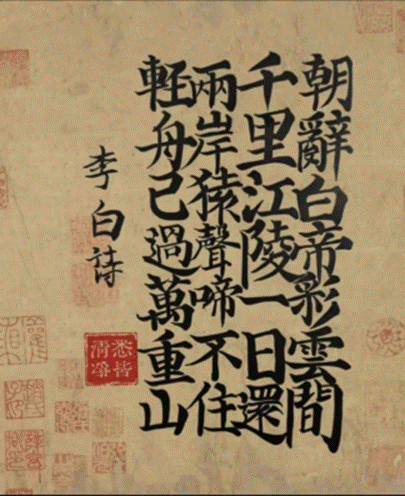 朝辭白帝彩雲間
千里江陵一日還
兩岸猿聲啼不住
軽舟已過萬重山
李白詩
悉皆
清淨